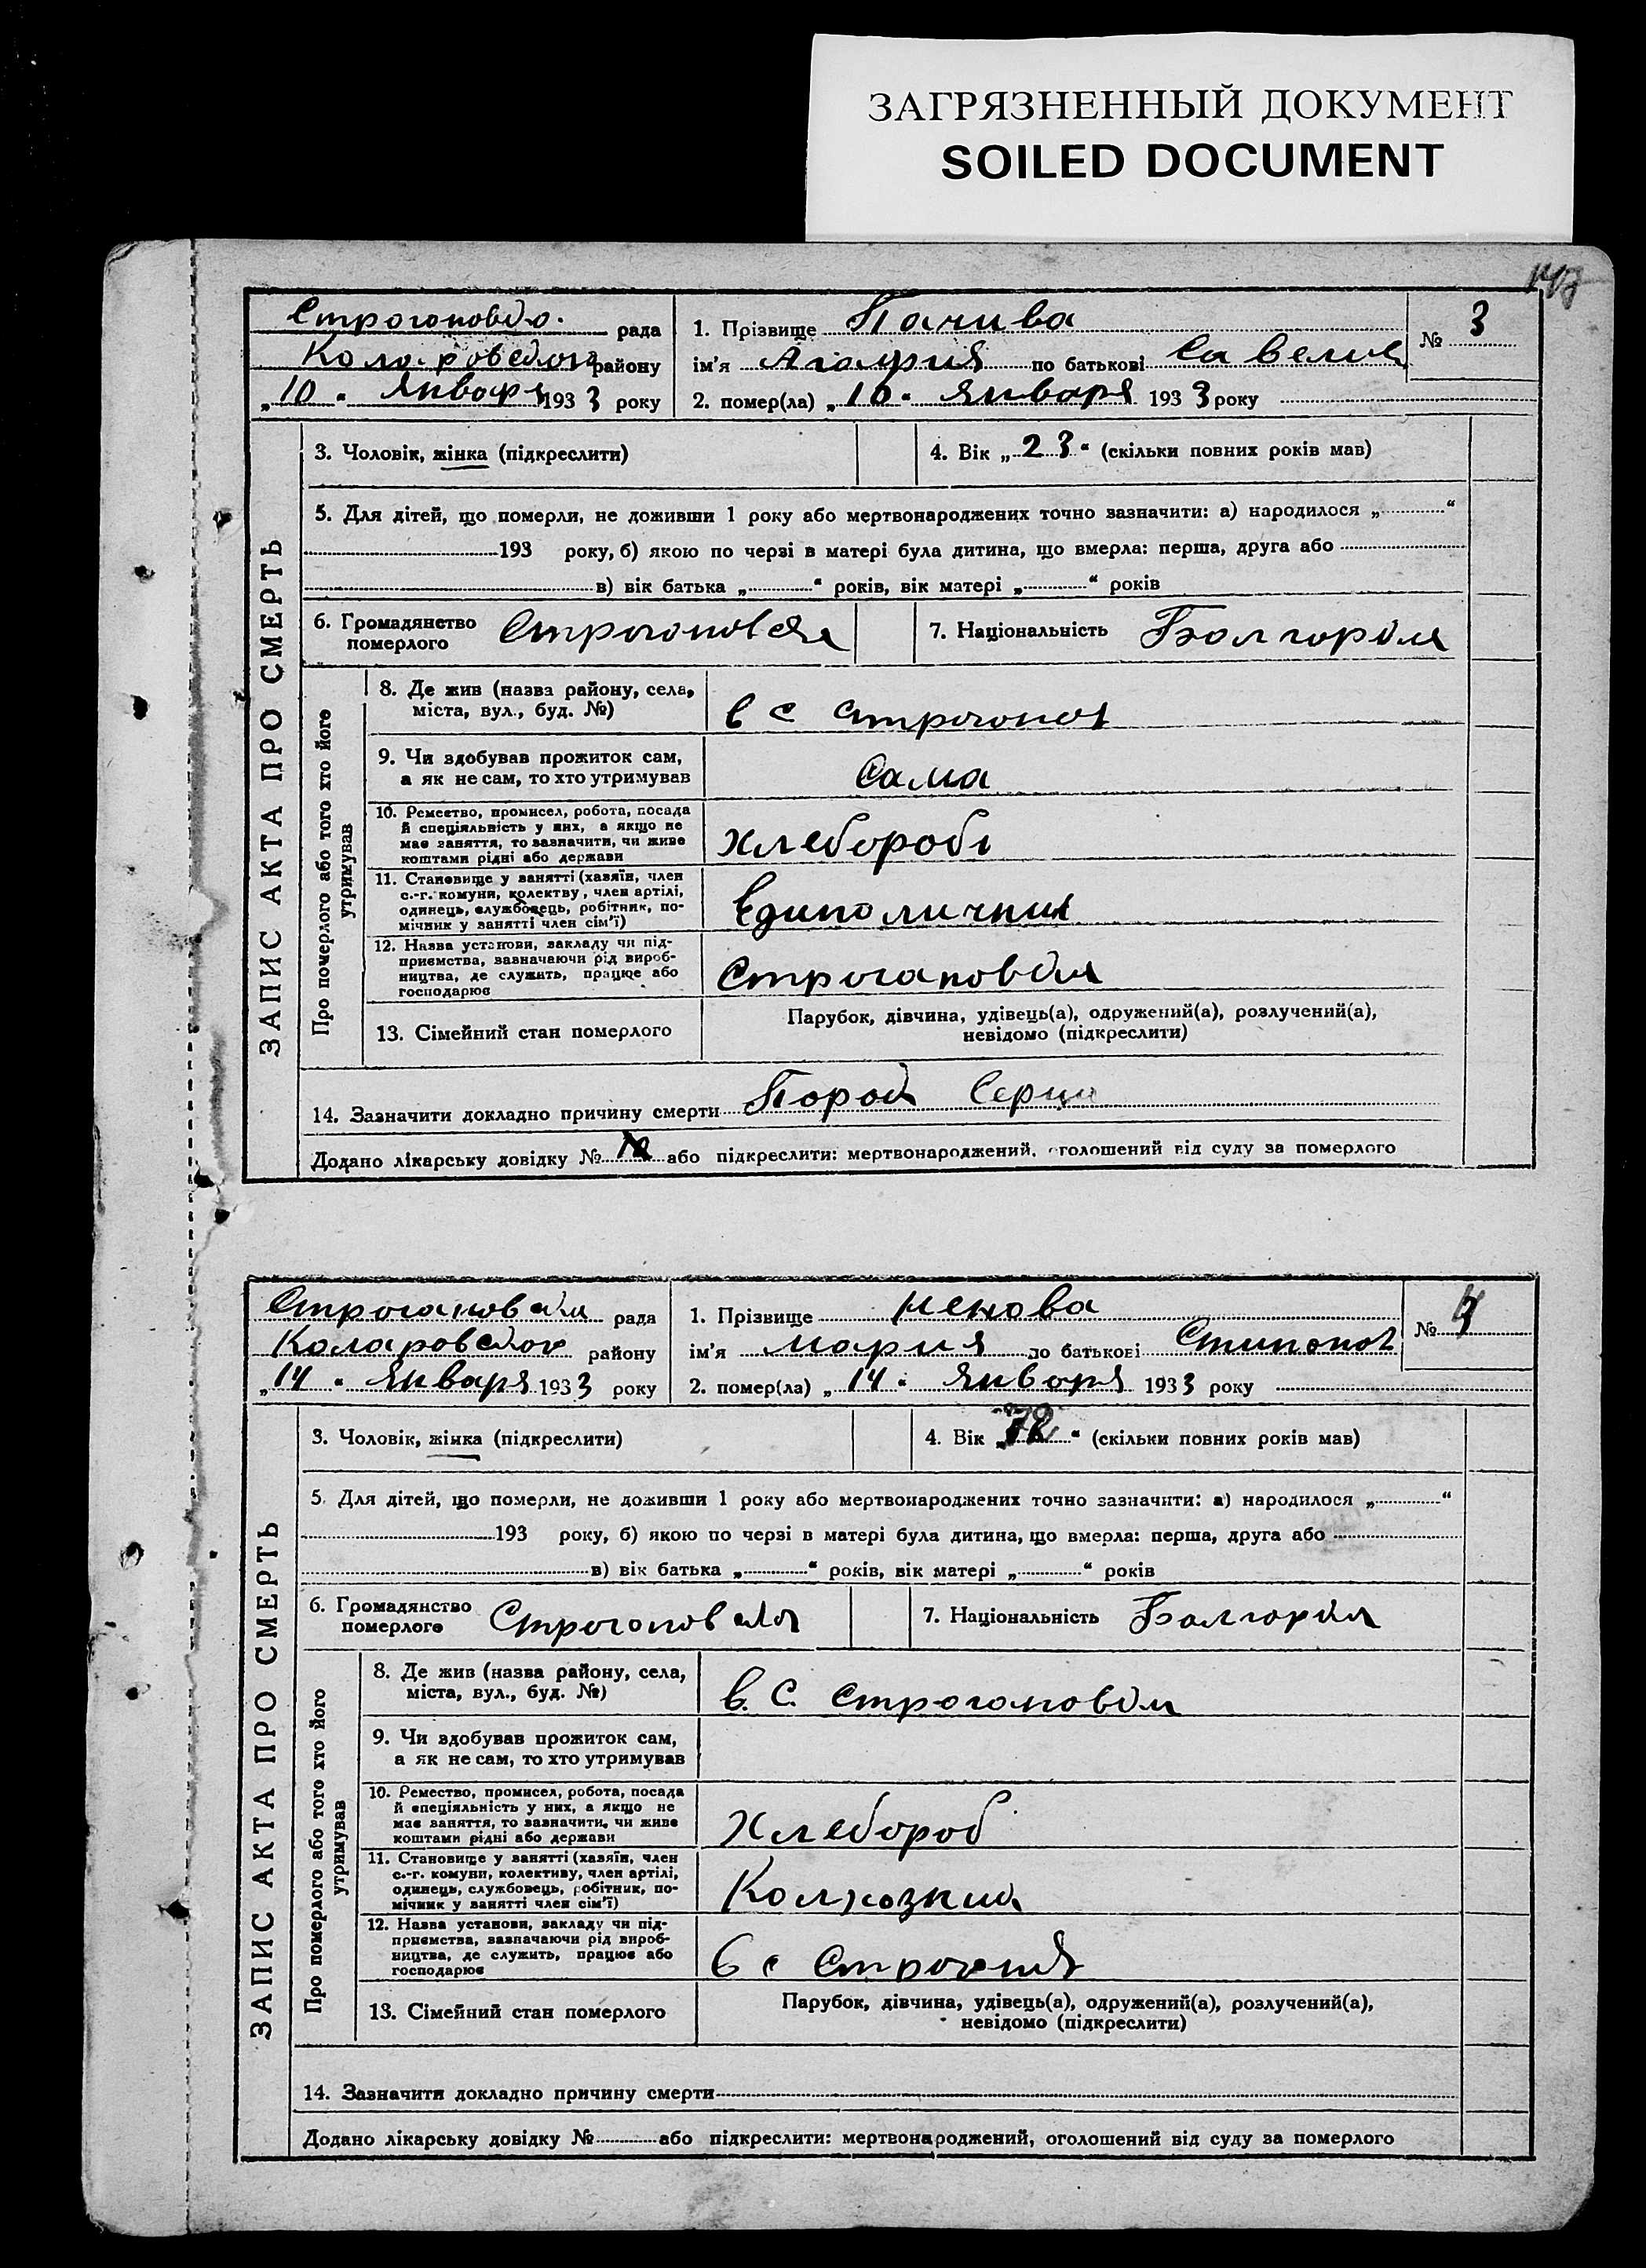 ЗАГРЯЗНЕННЫЙ ДОКУМЕНТ
SOILED DOCUMENT
рада
Коларовского району
„10“ Января 1933 року
1. Прізвище Пачива
ім'я Агафия по батькові Савелив
2. помер(ла) „10“ Января 1933 року
№ 3
ЗАПИС АКТА ПРО СМЕРТЬ
3. Чоловік, жінка (підкреслити)
4. Вік „23“ (скільки повних років мав)
5. Для дітей, що померли, не доживши 1 року або мертвонароджених точно зазначити: а) народилося „ “
193 року, б) якою по черзі в матері була дитина, що вмерла: перша, друга або
в) вік батька „ “ років, вік матері „ “ років
6. Громадянство
померлого
7. Національність
Про померлого або того хто його
утримував
8. Де жив (назва району, села,
міста, вул., буд. №)
в с
9. Чи здобував прожиток сам,
а як не сам, то хто утримував
Сама
10. Ремество, промисел, робота, посада
й спеціяльність у них, а якщо не
має заняття, то зазначити, чи живе
коштами рідні або держави
Хлебороб
11. Становище у занятті (хазяїн, член
с.-г. комуни, колектву, член артілі,
одинець, службовець, робітник, по-
мічник у занятті член сім'ї)
Единоличник
12. Назва установи, закладу чи під-
приємства, зазначаючи рід вироб-
ництва, де служить, працює або
господарює
13. Сімейний стан померлого
Парубок, дівчина, удівець(а), одружений(а), розлучений(а),
невідомо (підкреслити)
14. Зазначити докладно причину смерти Порок Серца
Додано лікарську довідку № або підкреслити: мертвонароджений, оголошений від суду за померлого
рада
Коларовского району
„14“ Января 1933 року
1. Прізвище Ненова
ім'я Мария по батькові
2. помер(ла) „14“ Января 1933 року
№ 4
ЗАПИС АКТА ПРО СМЕРТЬ
3. Чоловік, жінка (підкреслити)
4. Вік „72“ (скільки повних років мав)
5. Для дітей, що померли, не доживши 1 року або мертвонароджених точно зазначити: а) народилося „ “
193 року, б) якою по черзі в матері була дитина, що вмерла: перша, друга або
в) вік батька „ “ років, вік матері „ “ років
6. Громадянство
померлого
7. Національність
Про померлого або того хто його
утримував
8. Де жив (назва району, села,
міста, вул., буд. №)
в. с.
9. Чи здобував прожиток сам,
а як не сам, то хто утримував
10. Ремество, промисел, робота, посада
й спеціяльність у них, а якщо не
має заняття, то зазначити, чи живе
коштами рідні або держави
Хлебороб
11. Становище у занятті (хазяїн, член
с.-г. комуни, колективу, член артілі,
одинець, службовець, робітник, по-
мічник у занятті член сім'ї)
Колхозник
12. Назва установи, закладу чи під-
приємства, зазначаючи рід вироб-
ництва, де служить, працює або
господарює
в с
13. Сімейний стан померлого
Парубок, дівчина, удівець(а), одружений(а), розлучений(а),
невідомо (підкреслити)
14. Зазначити докладно причину смерти
Додано лікарську довідку № або підкреслити: мертвонароджений, оголошений від суду за померлого